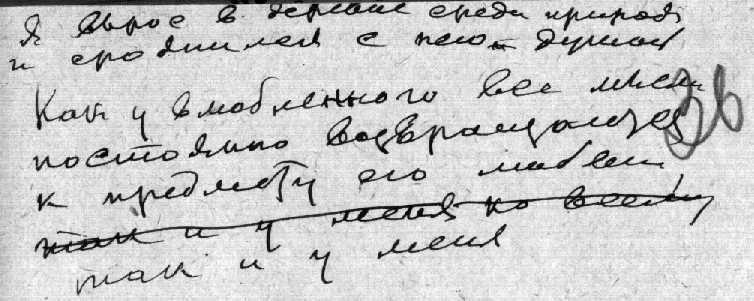 Я вырос в деревне среди природы
и сроднился с нею душой
Как у влюбленного все мысли
постоянно возвращаются
к предмету его любви,
так и у меня ко всему
так и у меня
36